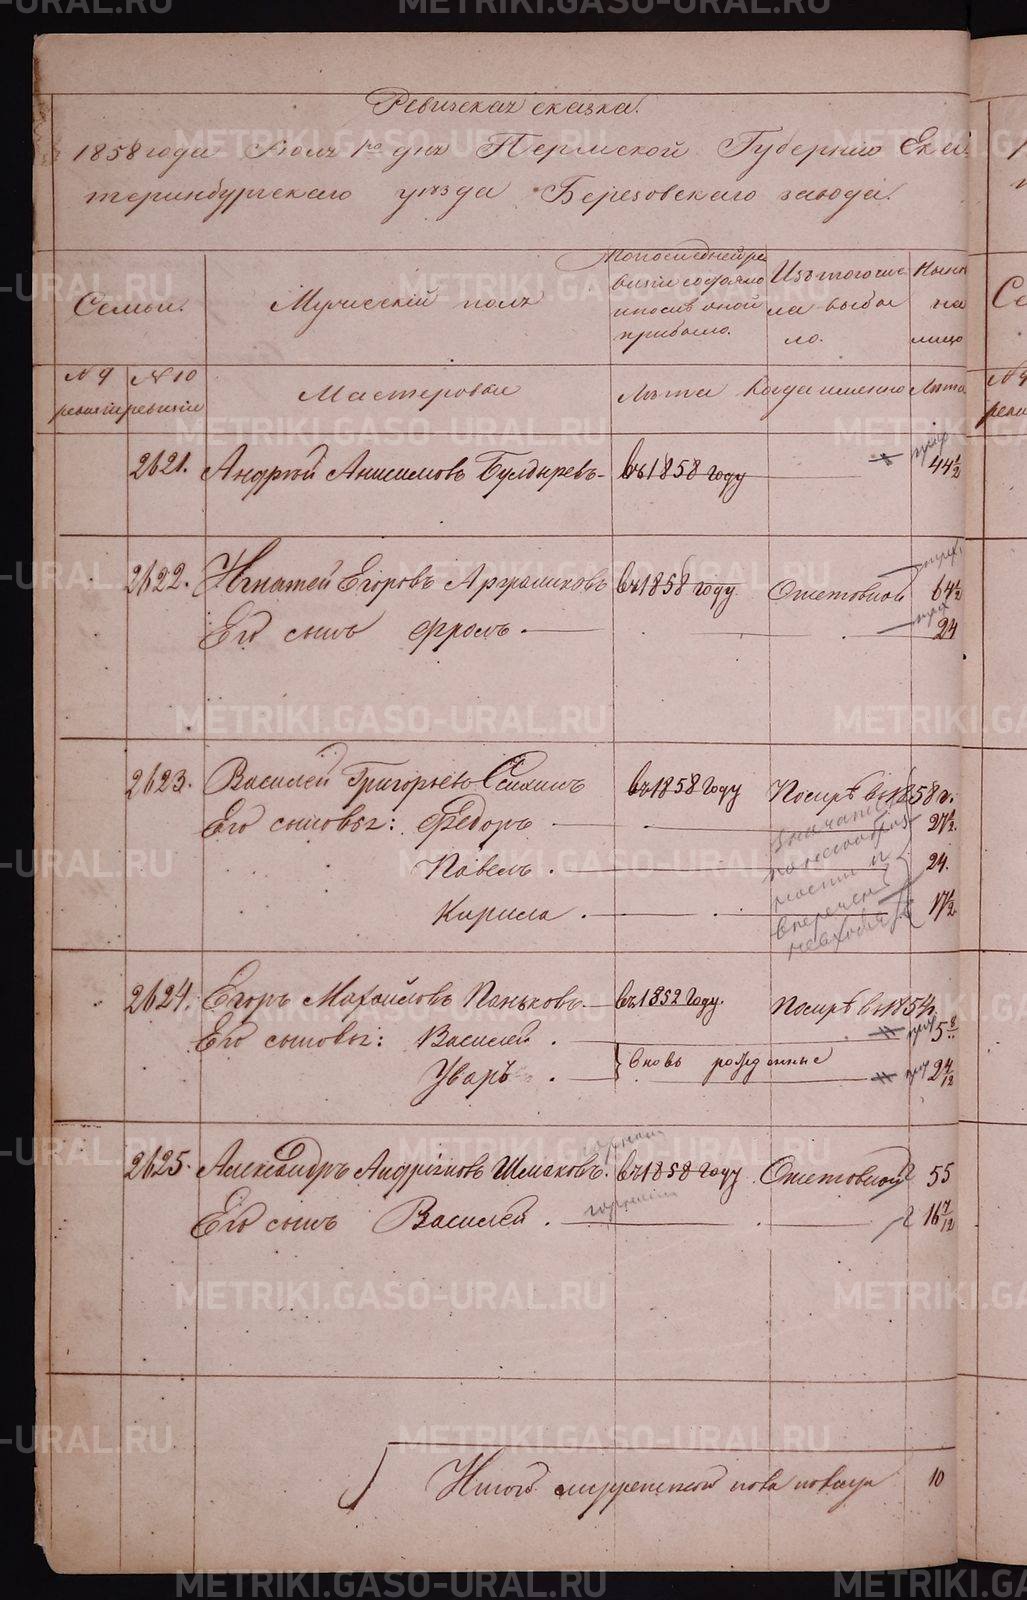 METRIKI.GASO-URAL.RU
Ревизская сказка.
1858 года Июля 1го дня Пермской Губернии Ека
теринбургскаго уезда Березовскаго завода.
Семьи.
Мужеский полъ
По последней ре
визiи состояло
и после оной
прибыло.
Изъ того чис
ла выбы
ло.
Ныне
на
лицо
N 9
ревизiи
N 10
ревизiи
Мастеровые
Лета
Когда именно
Лета
2621. Андрей Анисимовъ Булдыревъ - въ 1858 году 44 1/2
2622. Игнатей Егоровъ въ 1858 году Отставной 64 1/2
Его сынъ Фролъ. 24
2623. Василей Григорьевъ въ 1858 году Померъ въ 1858 г.
Его сыновья: Федоръ 27 1/2.
Павелъ. 24.
Кирила. 17 1/2
2624. Егоръ Михайловъ Паньковъ въ 1852 году. Померъ въ 1854
Его сыновья: Василей. 5
Уваръ. вновь рожденные 2
2625. Александръ Андрiяновъ Шмаковъ. въ 1858 году Отставной 55
Его сынъ Василей. 16 7/12
Итого мужескаго пола 10